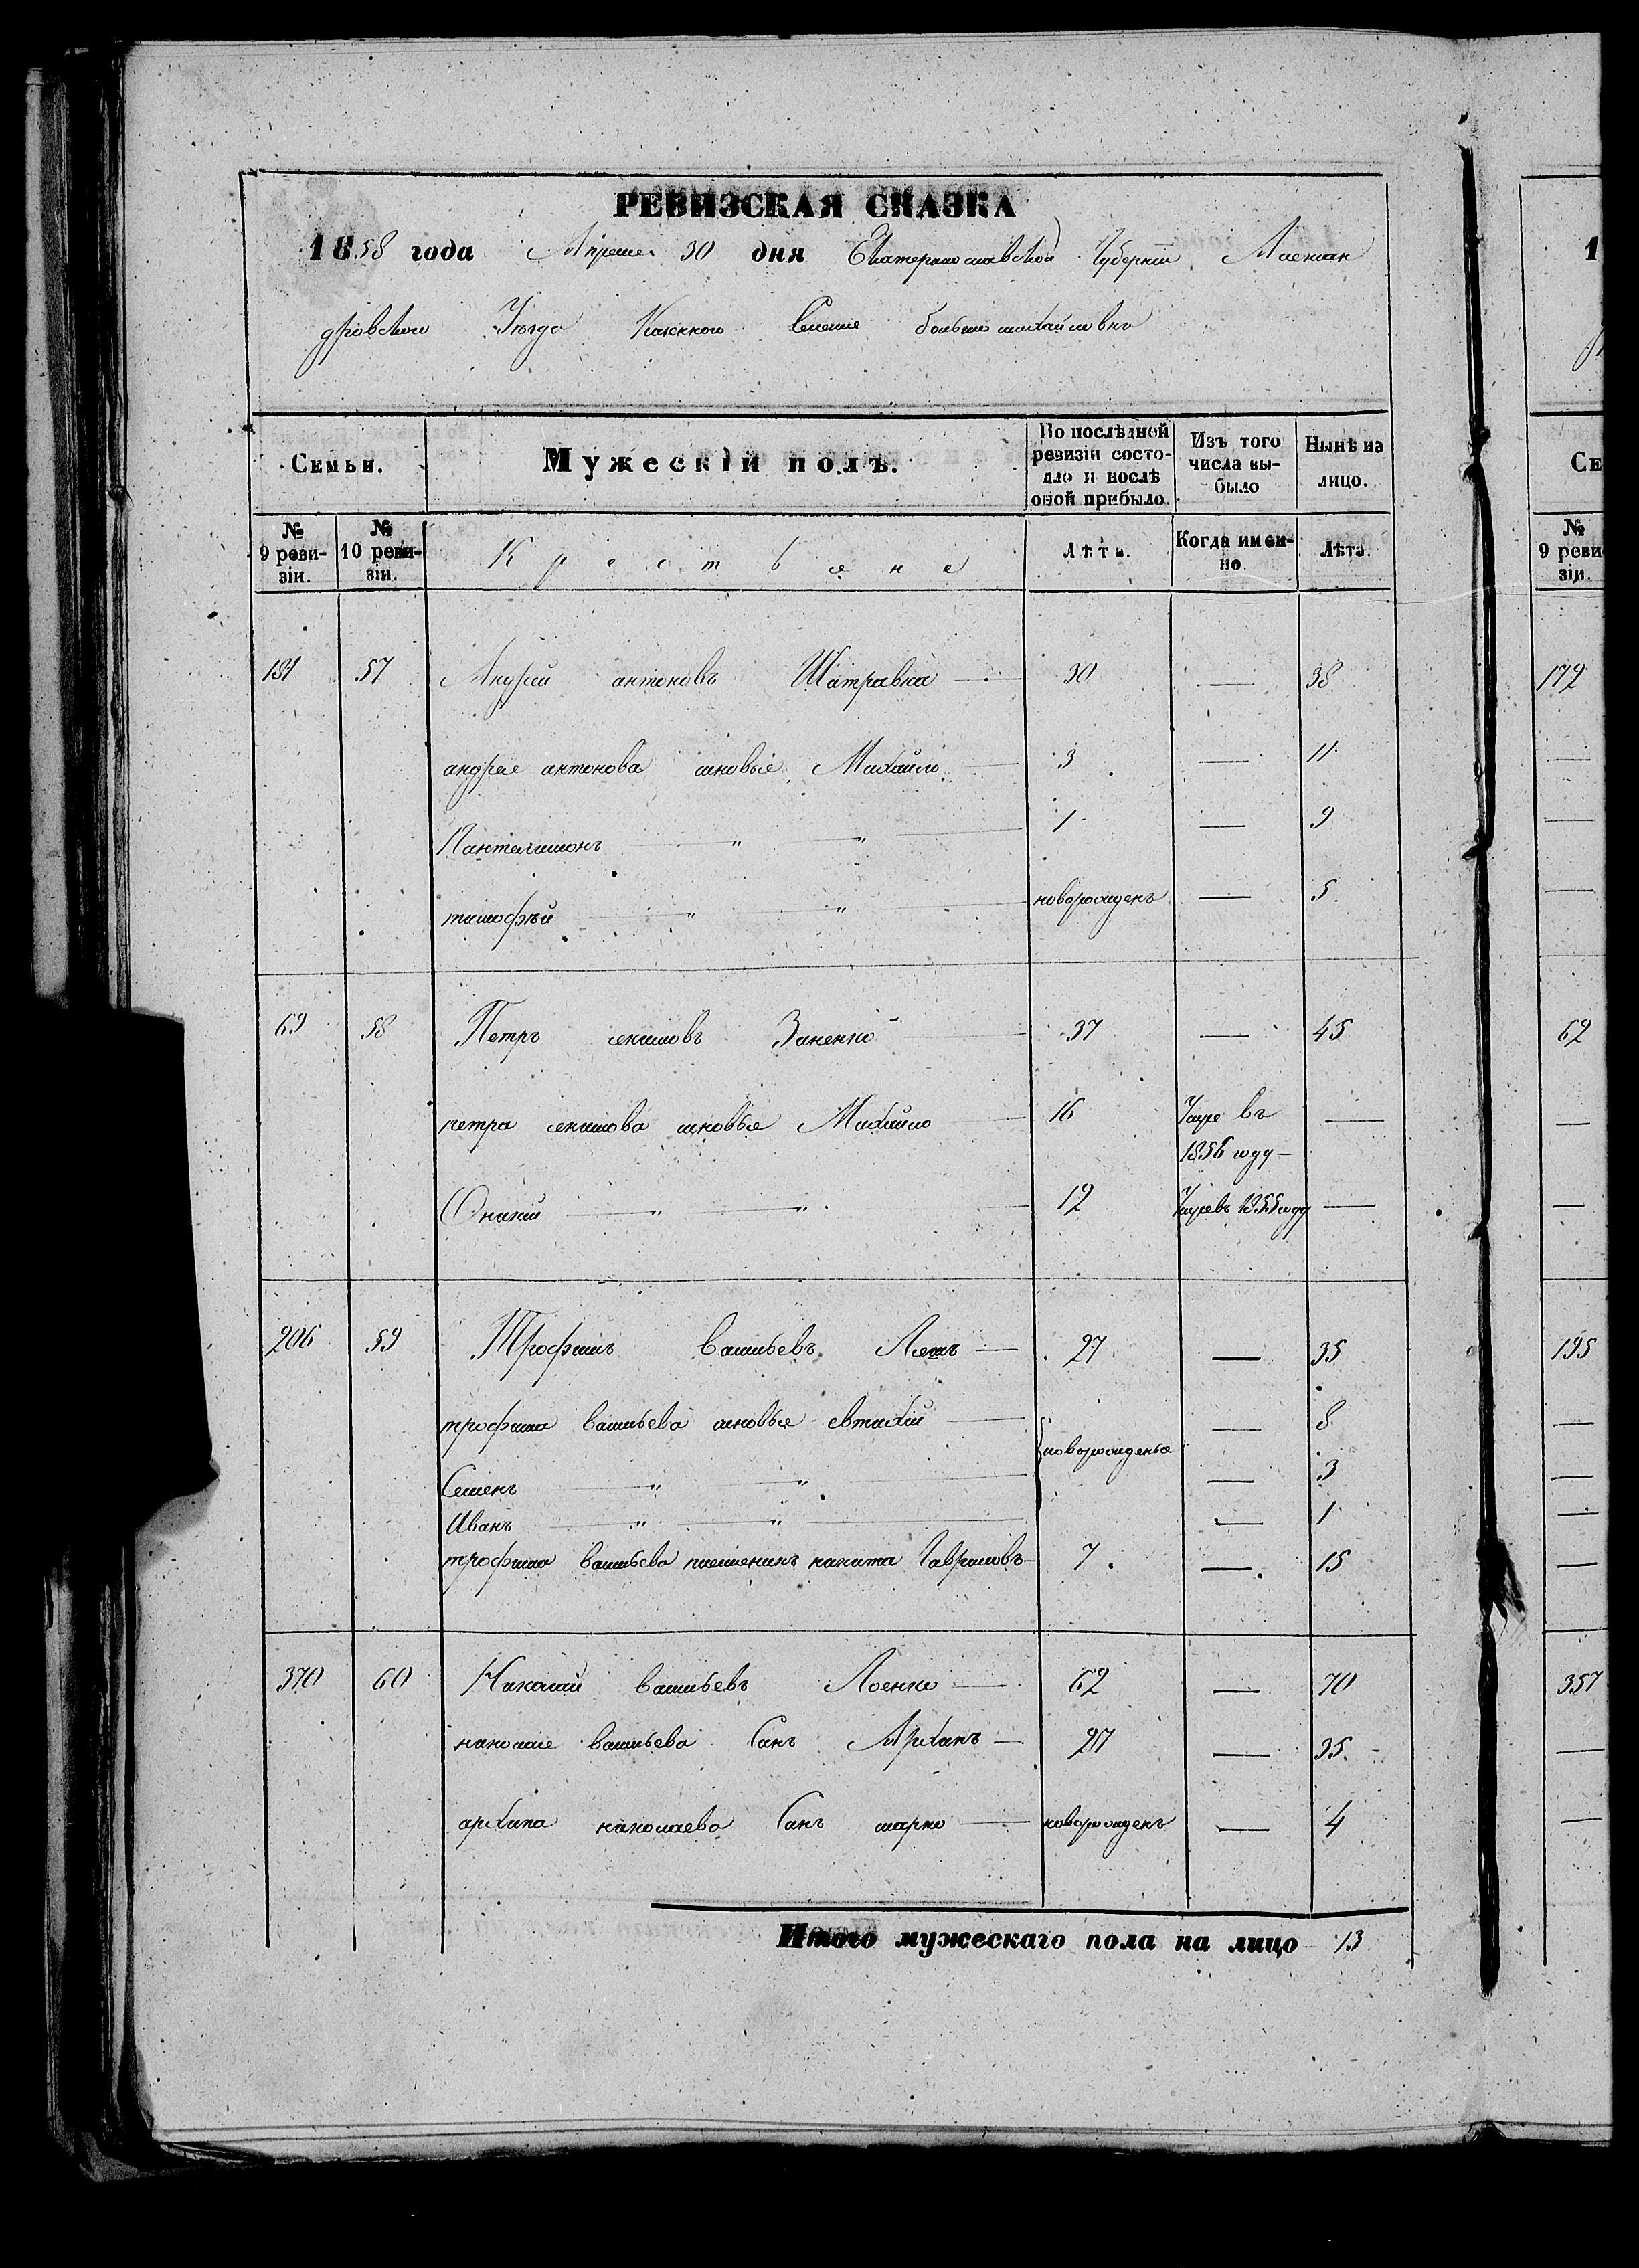 РЕВИЗСКАЯ СКАЗКА
1858 года Апреля 30 дня Екатеринославской Губернiи Алексан
дровского Уезда Казенного Селенiе большемихайловкъ
Семьи.
Мужескій полъ.
По послѣдней ревизіи состояло и послѣ оной прибыло.
Изъ того числа выбыло
Нынѣ на лицо.
№ 9 ревизіи.
№ 10 ревизіи.
Крестьяне
Лѣта.
Когда именно.
Лѣта.
181 57 Андрей антоновъ Шатравка — 30 — 38
андрея антонова сыновья Михайло — 3 — 11
Пантелимонъ — " — " — 1 — 9
тимофѣй — " — " — новорожденъ — 5
69 58 Петръ екимовъ Зиненко — 37 — 45
петра екимова сыновья Михайло — 16 Умре въ 1856 году —
Оникій — " — " — 12 Умре въ 1855 году —
206 59 Трофимъ васильевъ Ляшъ — 27 — 35
трофима васильева сыновья евтихій — новорожденые — 8
Семенъ — " — " — — 3
Иванъ — " — " — — 1
трофима васильева племеникъ никита Гавриловъ — 7 — 15
370 60 Николай васильевъ Лоенко — 62 — 70
николая васильева Сынъ Архипъ — 27 — 35
архипа николаева Сынъ марко — новорожденъ — 4
Итого мужескаго пола на лицо 13
1
Се
№
9 реви
зіи.
172
—
—
—
62
—
—
195
—
—
—
—
357
—
—